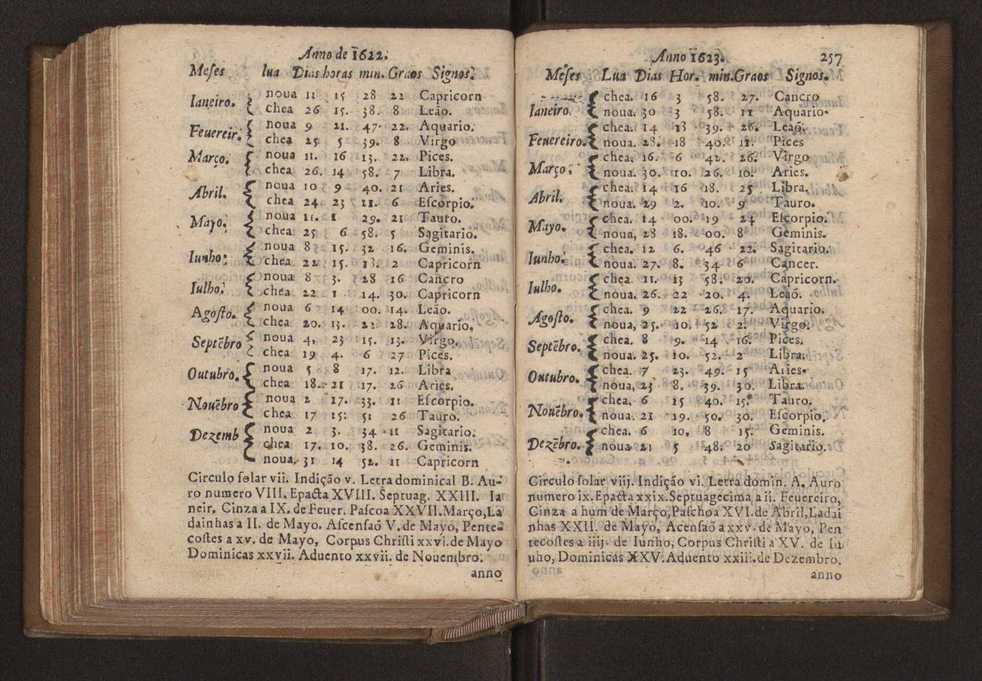 Anno de 1622.
Meses lua Dias horas min. Graos Signos.
Ianeiro. noua 11 15 28 22 Capricorn
chea 26 15. 38. 8 Leão.
Feuereir. noua 9 21. 47. 22. Aquario.
chea 25 5 39. 8 Virgo
Março. noua 11. 16 13. 22. Pices.
chea 26. 14 58. 7 Libra.
Abril. noua 10 9 40. 21 Aries.
chea 24. 23 11. 6 Escorpio.
Mayo. noua 11. 1 29. 21 Tauro.
chea 25 6 58. 5 Sagitario.
Iunho. noua 8 15. 32 16. Geminis.
chea 22 15. 18. 2 Capricorn
Iulho. noua 8 3. 28 16 Cancro
chea 22 1 14. 30. Capricorn
Agosto. noua 6 14 00. 14. Leão.
chea 20. 13. 21 28. Aquario.
Septẽbro noua 4. 23 15. 13. Virgo.
chea 19 4. 6 27 Pices.
Outubro. noua 5 8 17. 12. Libra
chea 18. 21 17. 26 Aries.
Nouẽbro noua 2 17. 33. 11 Escorpio.
chea 17 15: 51 26 Tauro.
Dezemb noua 2 3. 34 11 Sagitario.
chea 17. 10. 38. 26. Geminis.
noua. 31 14 52. 11 Capricorn
Circulo solar vii. Indição v. Letra dominical B. Au-
ro numero VIII. Epacta XVIII. Septuag. XXIII. Ia
neir. Cinza a IX. de Feuer. Pascoa XXVII. Março, La
dainhas a II. de Mayo. Ascensaõ V. de Mayo, Pente-
costes a xv. de Mayo, Corpus Christi xxvi. de Mayo
Dominicas xxvii. Aduento xxvii. de Nouembro.
anno
Anno 1623. 257
Meses Lua Dias Hor. min. Graos Signos.
Ianeiro. chea. 16 3 58. 27. Cancro
noua. 30 3 58. 11 Aquario.
Feuereiro. chea. 14 18 39. 26. Leaõ.
noua. 28. 18 40. 11. Pices
Março. chea. 16. 6 42. 26. Virgo
noua. 30. 10. 26. 10. Aries.
Abril. chea. 14 16 18. 25 Libra.
noua. 29 2. 10. 9 Tauro.
Mayo. chea. 14 00. 19 24 Escorpio.
noua, 28 18. 00. 8 Geminis.
Iunho. chea. 12 6. 46 22. Sagitario.
noua. 27. 8. 34 6 Cancer.
Iulho. chea. 11. 13 58. 20. Capricorn.
noua. 26. 22 20. 4. Leaõ.
Agosto. chea. 9 22 26. 17. Aquario.
noua, 25. 10. 52 2. Virgo.
Septẽbro. chea. 8 9. 14 16. Pices.
noua. 25. 10. 52. 2 Libra.
Outubro. chea. 7 23. 49. 15 Aries.
noua, 23 8. 39. 30. Libra.
Nouẽbro. chea. 6 15 40. 15. Tauro.
noua. 21 19. 50. 30. Escorpio.
Dezẽbro. chea. 6 10. 8 15. Geminis.
noua 21 5 48. 20 Sagitario.
Circulo solar viij. Indição vi. Letra domin. A. Auro
numero ix. Epacta xxix. Septuagecima a ii. Feuereiro,
Cinza a hum de Março, Paschoa XVI. de Abril, Ladai
nhas XXII. de Mayo, Acensaõ a xxv. de Mayo, Pen
tecostes a iiij. de Iunho, Corpus Christi a XV. de Iu
nho, Dominicas XXV. Aduento xxiii. de Dezembro,
anno